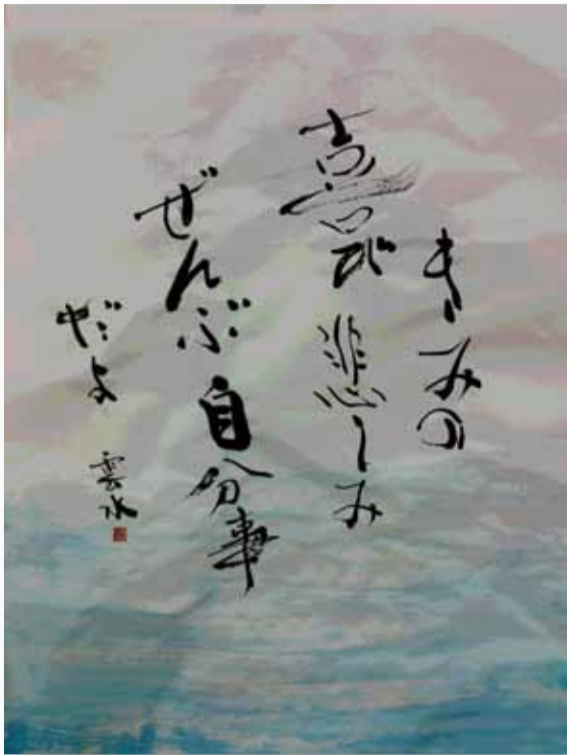 きみの
喜び悲しみ
ぜんぶ自分事
だよ
雲水